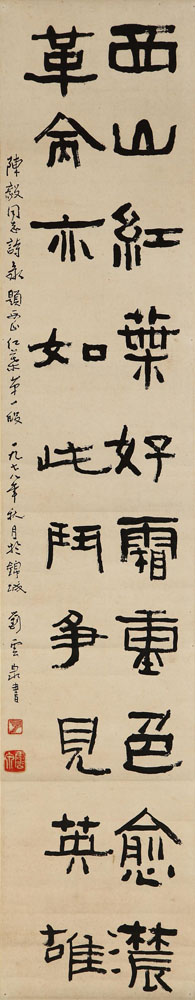 西山紅葉好霜重色愈濃
革命亦如此鬥爭見英雄
陳毅同志詩數題西山紅葉第一段 一九七八年秋月於錦城 劉雲泉書